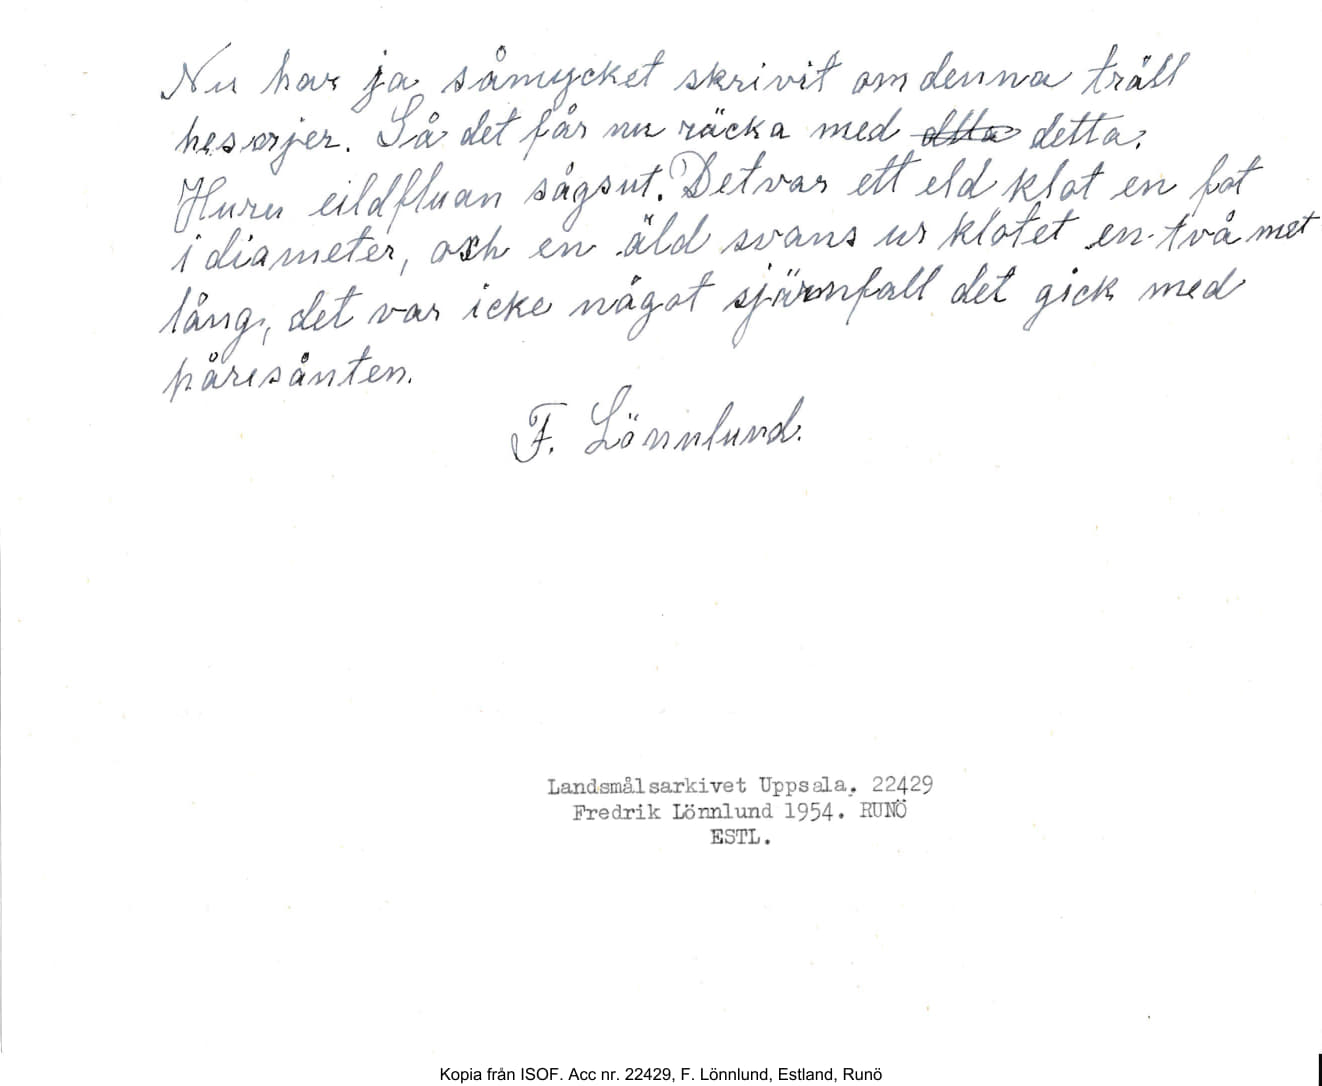 Nu har ja såmycket skrivit om denna träll
hesorjer. Så det får nu räcka med detta.
Huru eildfluan sågsut. Detvar ett eld klot en fot
i diameter, och en äld svans ur klotet en två met
lång, det var icke något sjärnfall det gick med
F. Lönnlund.
Landsmålsarkivet Uppsala. 22429
Fredrik Lönnlund 1954. RUNÖ
ESTL.
Kopia från ISOF. Acc nr. 22429, F. Lönnlund, Estland, Runö